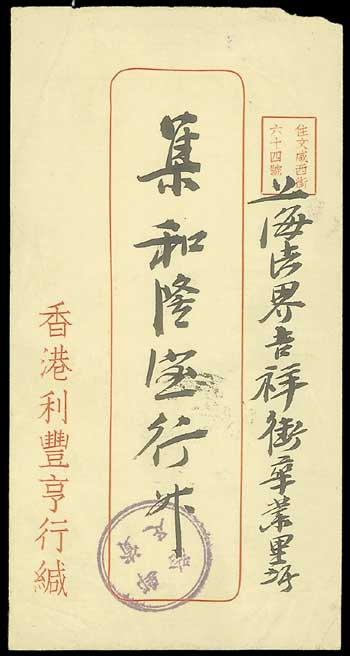 住文咸西街
六十四號
上海法界吉祥街華業里
集和隆寶行升
香港利豐亨行緘